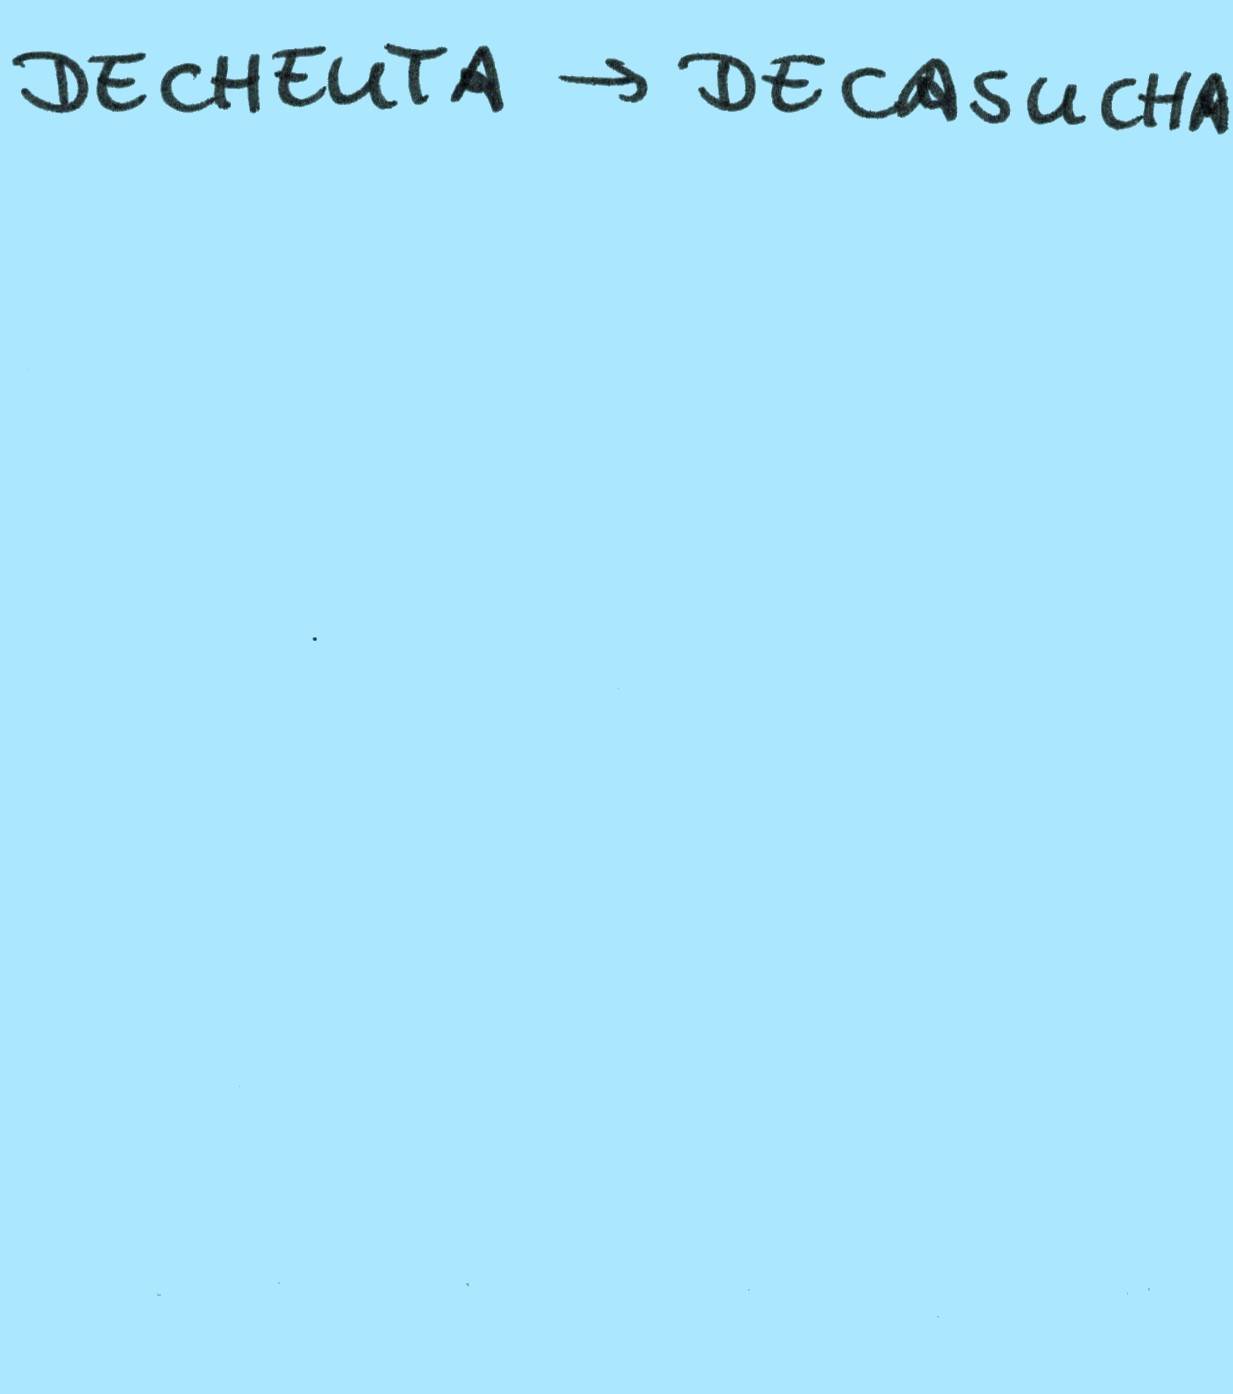 DECHEUTA → DECASUCHA